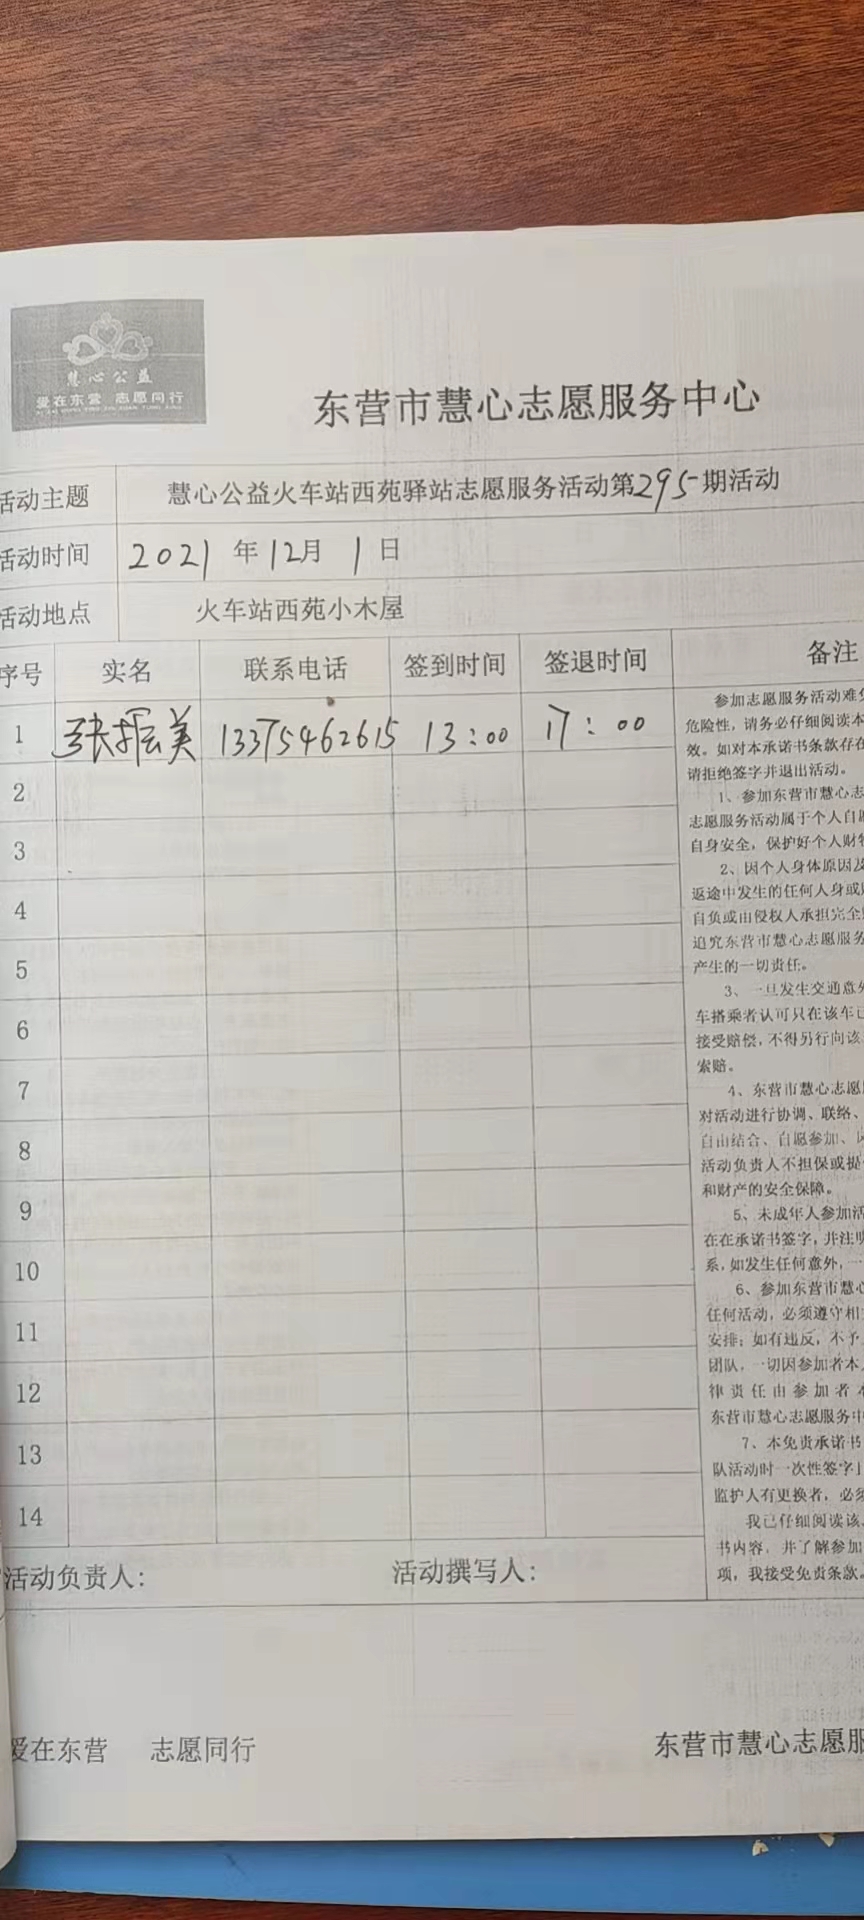 慧心公益
爱在东营 志愿同行
东营市慧心志愿服务中心
活动主题 慧心公益火车站西苑驿站志愿服务活动第295期活动
活动时间 2021年12月1日
活动地点 火车站西苑小木屋
序号 实名 联系电话 签到时间 签退时间 备注
1 张振美 13375462615 13:00 17:00
2
3
4
5
6
7
8
9
10
11
12
13
14
参加志愿服务活动难免
危险性，请务必仔细阅读本
效。如对本承诺书条款存在
请拒绝签字并退出活动。
1、参加东营市慧心志
志愿服务活动属于个人自愿
自身安全，保护好个人财物
2、因个人身体原因及
返途中发生的任何人身或财
自负或由侵权人承担完全
追究东营市慧心志愿服务
产生的一切责任。
3、一旦发生交通意外
车搭乘者认可只在该车已
接受赔偿，不得另行向该
索赔。
4、东营市慧心志愿
对活动进行协调、联络、
自由结合、自愿参加、风
活动负责人不担保或提供
和财产的安全保障。
5、未成年人参加活
在在承诺书签字，并注明
系，如发生任何意外，一
6、参加东营市慧心
任何活动，必须遵守相
安排；如有违反，不予
团队，一切因参加者本
律责任由参加者本
东营市慧心志愿服务中
7、本免责承诺书
队活动时一次性签字
监护人有更换者，必须
我已仔细阅读该
书内容，并了解参加
项，我接受免责条款。
活动负责人： 活动撰写人：
爱在东营 志愿同行 东营市慧心志愿服